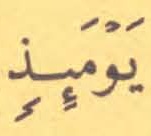 يَوْمَئِذٍ